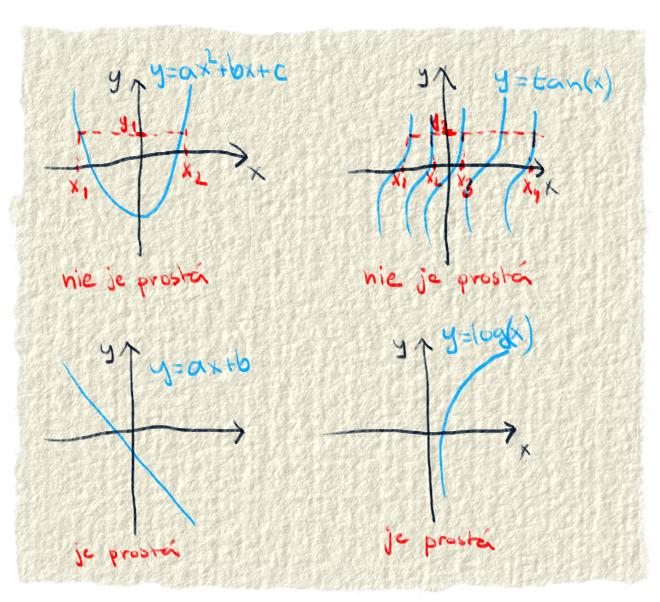 y y=ax²+bx+c
y₁
x
x₁ x₂
nie je prostá
y y=tan(x)
y₁
x₁ x₂ x₃ x₄ x
nie je prostá
y y=ax+b
je prostá
y y=log(x)
x
je prostá